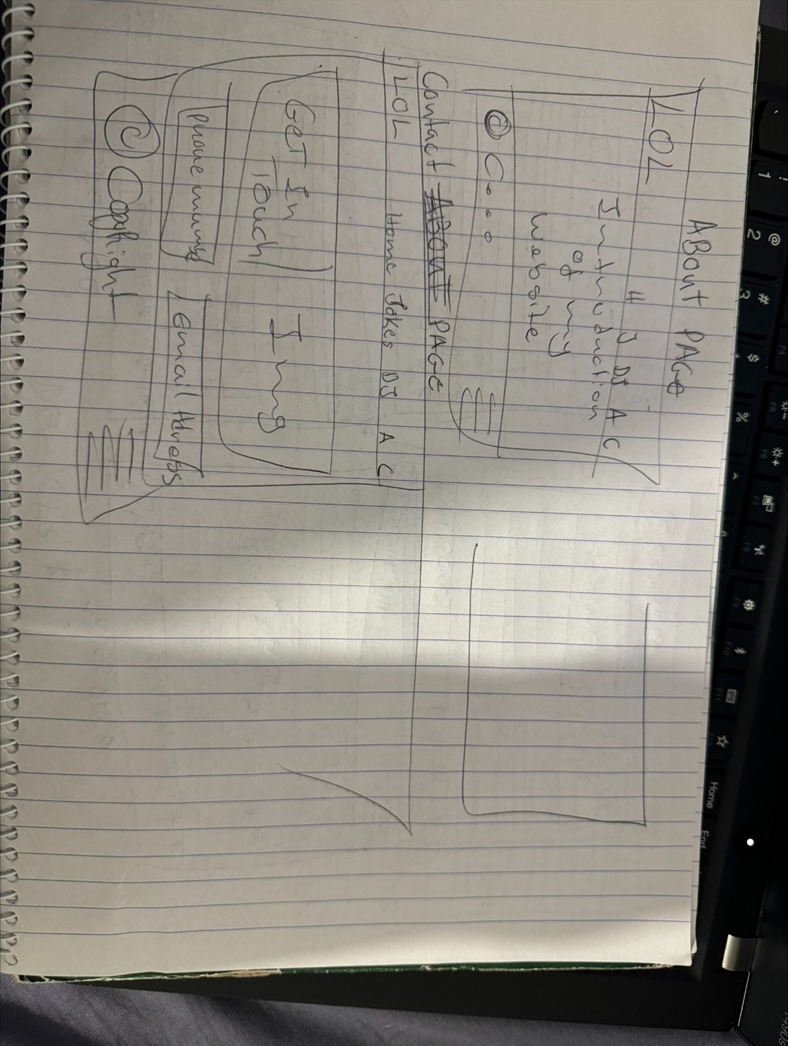 ABout PAGE
LOL
H J DJ A C
Introduction
of my
website
© C...
Contact ABOUT PAGE
LOL Home Jokes DJ A C
GET In
Touch
Img
Email
© Copyright
! 1
@ 2
# 3
$
%
Home
End